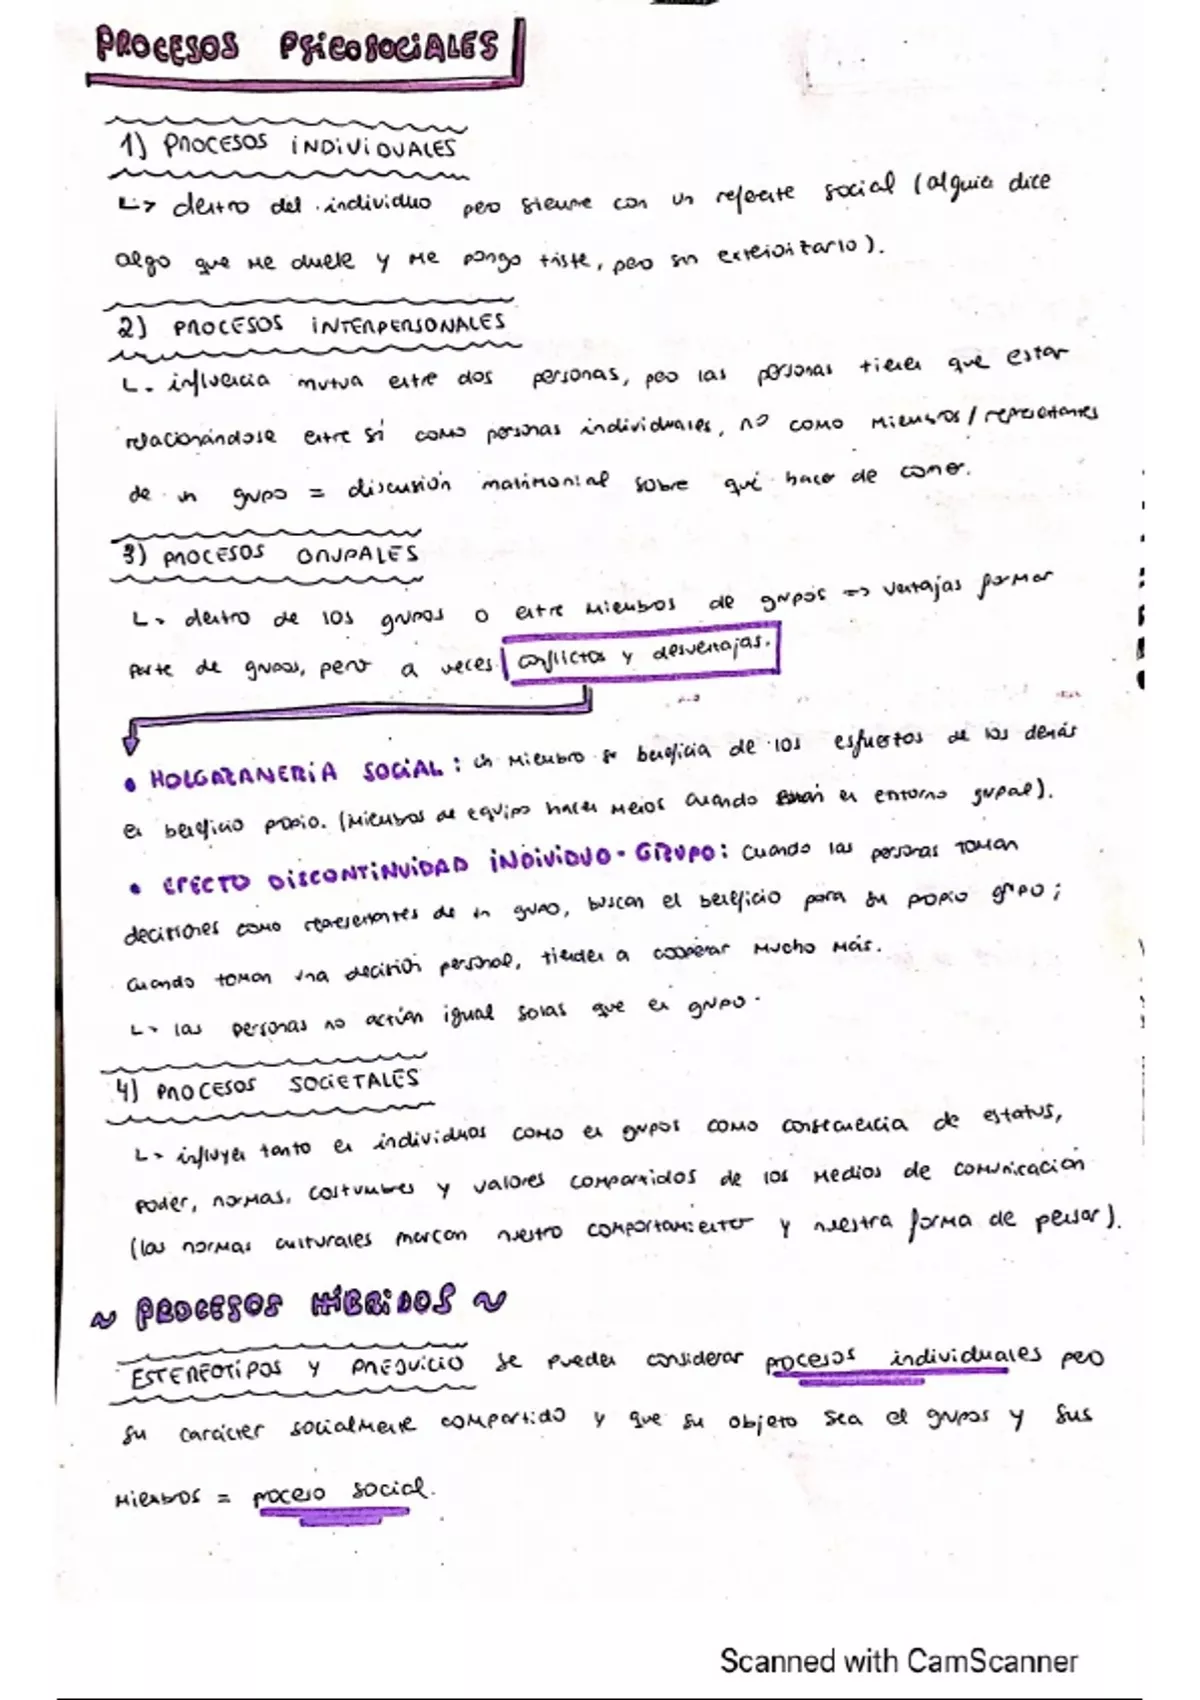 PROCESOS PSICOSOCIALES
1) PROCESOS INDIVIDUALES
↳ dentro del individuo pero siempre con un referente social (alguien dice
algo que me duele y me pongo triste, pero sin exteriorizarlo).
2) PROCESOS INTERPERSONALES
↳ influencia mutua entre dos personas, pero las personas tienen que estar
relacionándose entre sí como personas individuales, no como miembros / representantes
de un grupo = discusión matrimonial sobre qué hacer de comer.
3) PROCESOS GRUPALES
↳ dentro de los grupos o entre miembros de grupos => ventajas formar
parte de grupos, pero a veces conflictos y desventajas.
• HOLGAZANERIA SOCIAL: un miembro se beneficia de los esfuerzos de los demás
en beneficio propio. (Miembros de equipo hacen menos cuando están en entorno grupal).
• EFECTO DISCONTINUIDAD INDIVIDUO-GRUPO: cuando las personas toman
decisiones como representantes de un grupo, buscan el beneficio para su propio grupo;
cuando toman una decisión personal, tienden a cooperar mucho más.
↳ las personas no actúan igual solas que en grupo.
4) PROCESOS SOCIETALES
↳ influyen tanto en individuos como en grupos como consecuencia de estatus,
poder, normas, costumbres y valores compartidos de los medios de comunicación
(las normas culturales marcan nuestro comportamiento y nuestra forma de pensar).
~ PROCESOS HÍBRIDOS ~
ESTEREOTIPOS Y PREJUICIO se pueden considerar procesos individuales pero
su carácter socialmente compartido y que su objeto sea el grupos y sus
miembros = proceso social.
Scanned with CamScanner